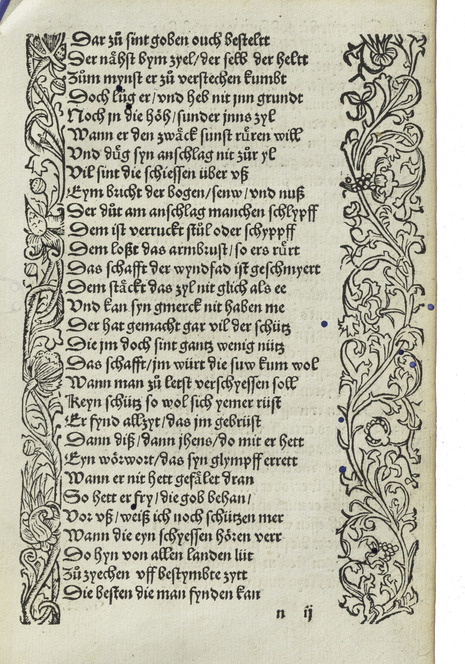 Dar zuͦ sint goben ouch bestellt
Der naͤhst bym zyel/ der selb der heltt
Zuͦm mynst er zuͦ verstechen kumbt
Doch luͦg er/ vnd heb nit jnn grundt
Noch jn die hoͤh/ sunder jnns zyl
Wann er den zwaͤck sunst ruͤren will
Vnd duͤg syn anschlag nit zuͦr yl
Vil sint die schiessen über vß
Eym bricht der bogen/ senw/ vnd nuß
Der duͦt am anschlag manchen schlypff
Dem ist verruckt stuͦl oder schyppff
Dem loßt das armbrust/ so ers ruͤrt
Das schafft der wyndfad ist geschmyert
Dem staͤckt das zyl nit glich als ee
Vnd kan syn gmerck nit haben me
Der hat gemacht gar vil der schütz
Die jm doch sint gantz wenig nütz
Das schafft/ jm würt die suw kum wol
Wann man zuͦ letst verschyessen soll
Keyn schütz so wol sich yemer rüst
Er fynd allzyt/ das jm gebrüst
Dann diß/ dann jhens/ do mit er hett
Eyn woͤrwort/ das syn glympff errett
Wann er nit hett gefaͤlet dran
So hett er fry/ die gob behan/
Vor vß/ weiß ich noch schützen mer
Wann die eyn schyessen hoͤren verr
Do hyn von allen landen lüt
Zuͦ zyechen vff bestymbte zytt
Die besten die man fynden kan
n ij